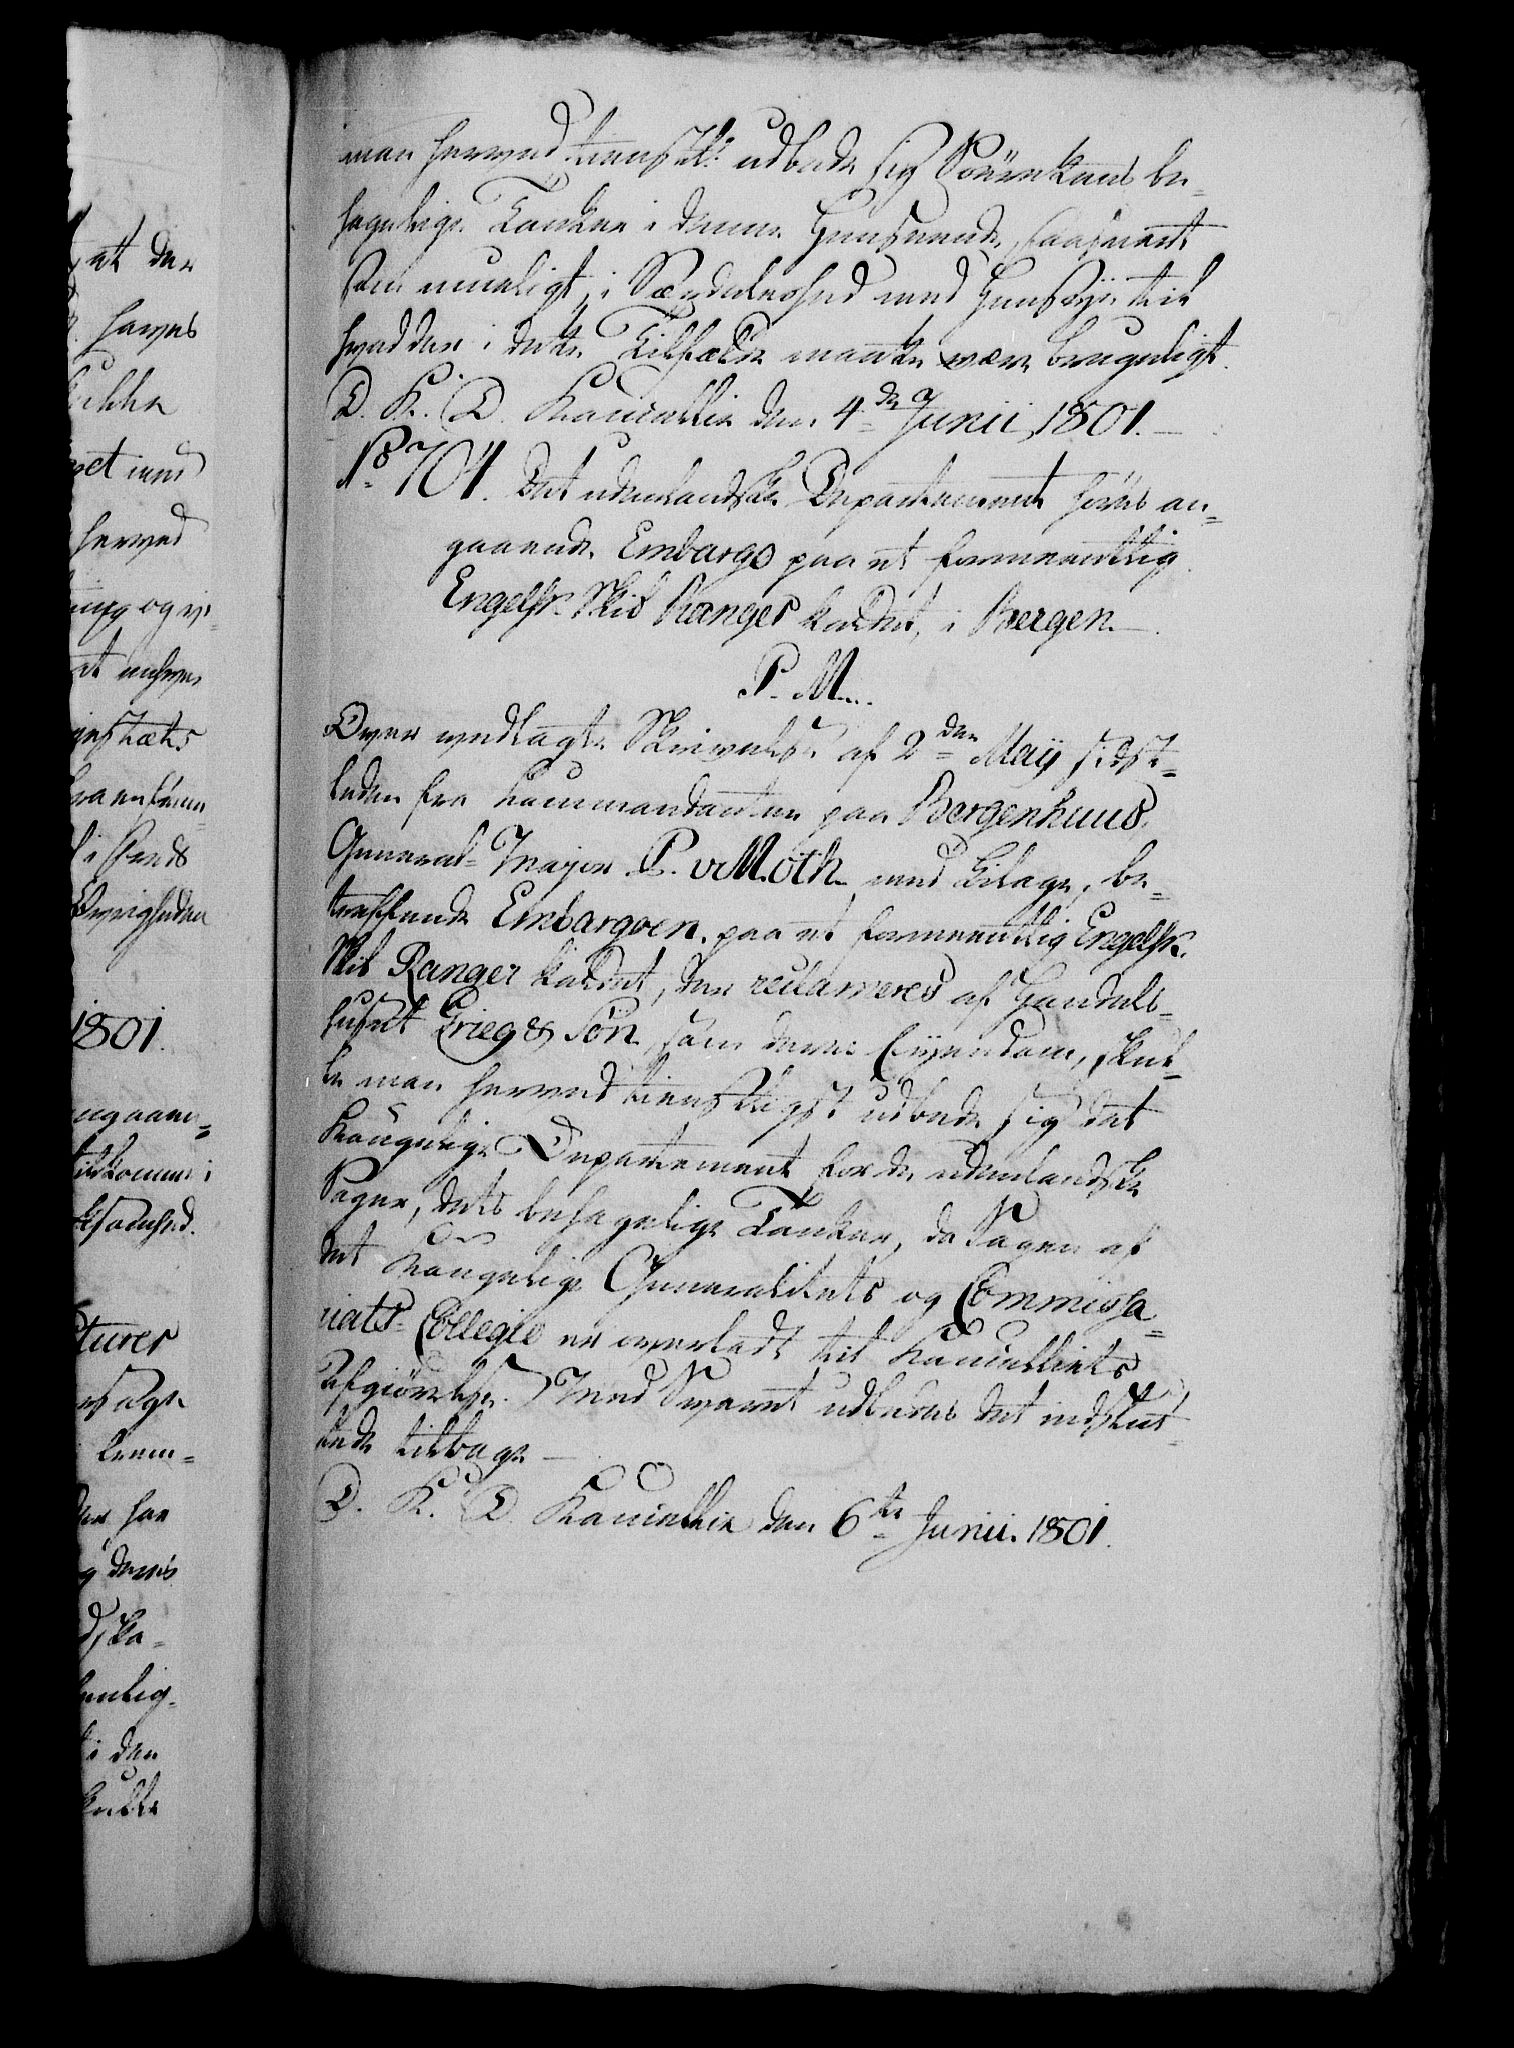 man herved tienstl: udbede sig Søeækens be-
hagelige Tanker i denne Henseende, saasnart
som mueligt, i Særdeleshed med Hensyn til
hvad der i dette Tilfælde maatte være brugeligt.
D. K. D. Kancellie den 4de Junii 1801.
No 704. Det udenlandske Departement høres an-
gaaende Embargo paa et formeentlig
Engelsk Skib Ranger kaldet, i Bergen.
P. M.
Over vedlagte Skrivelse af 2den Maÿ sidst-
leden fra Commandanten paa Bergenhuus,
General-Major P. v Moth med Bilage, be-
treffende Embargoen paa et formeentlig Engelsk
Skib Ranger kaldet, der reclameres af Handels-
huset Grieg & Søn, som deres Eyendom, skul-
le man herved tienstligst udbede sig det
Kongelige Departement for de udenlandske
Sager, dets behagelige Tanker, da Sagen af
det Kongelige Generalitets og Commissa-
riats-Collegie er overladt til Kancelliets
Afgiørelse. Med Svaret udbedes det indslut-
tede tilbage.
D. K. D. Kancellie den 6te Junii 1801.
at der
haves
herved
1801.
i den
skulle